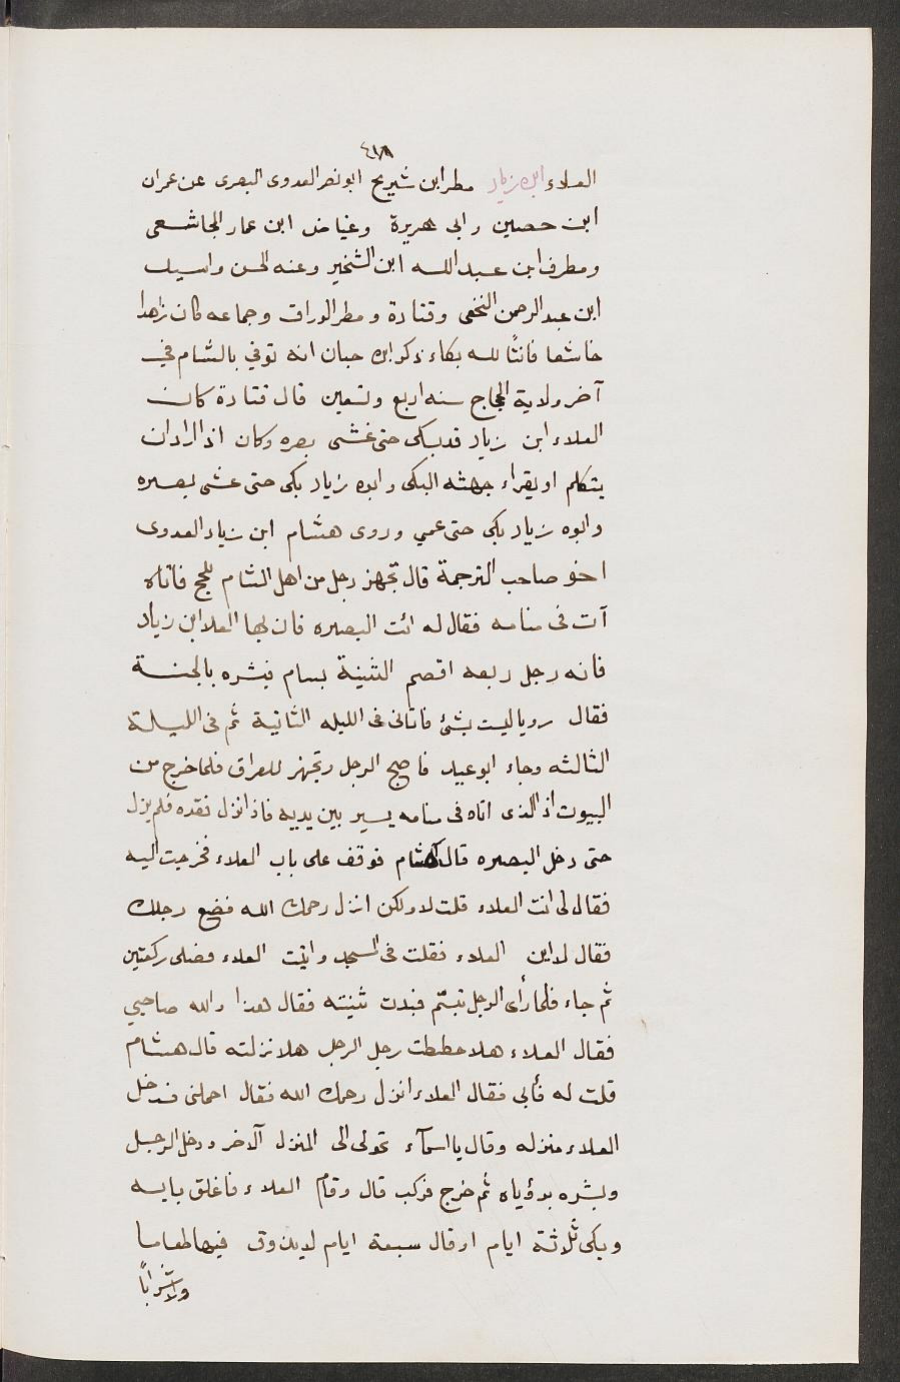 ٤١٨
العلاء ابن زياد مطر ابن شريح ابو نصر العدوى البصرى عن عمران
ابن حصين وابى هريرة وعياض ابن عمار المجاشعى
ومطرف ابن عبد الله ابن الشخير وعنه الحسن واسيد
ابن عبد الرحمن النخعى وقتادة ومطر الوراق وجماعه كان زاهدا
خاشعا قانتًا لله بكاء ذكر ابن حبان انه توفي بالشام في
آخر ولاية الحجاج سنه اربع وتسعين قال قتادة كان
العلاء ابن زياد قد بكى حتى غشى بصره وكان اذا اراد ان
يتكلم او يقراء جهشه البكى وابوه زياد بكى حتى عشى بصره
وابوه زياد بكى حتى عمي وروى هشام ابن زياد العدوى
اخو صاحب الترجمة قال تجهز رجل من اهل الشام للحج فاتاه
آت فى منامه فقال له ائت البصره فان بها العلا ابن زياد
فانه رجل ربعه اقصم الثنية بسام فبشره بالجنة
فقال رويا ليست بشئ فاتانى فى الليله الثانية ثم فى الليلة
الثالثه وجاء ابو عبيد فاصبح الرجل وتجهز للعراق فلما خرج من
البيوت اذ الذى اتاه فى منامه يسير بين يديه فاذا نزل نقده فلم يزل
حتى دخل البصره قال هشام فوقف على باب العلاء فخرجت اليه
فقال لى انت العلاء قلت لا ولكن انزل رحمك الله فضع رحلك
فقال لا اين العلاء فقلت فى المسجد واتيت العلاء فصلى ركعتين
ثم جاء فلما رأى الرجل تبسّم فبدت ثنيته فقال هذا والله صاحبي
فقال العلاء هلا حططت رحل الرجل هلا نزلته قال هشام
قلت له فأبى فقال العلاء انزل رحمك الله فقال احملنى فدخل
العلاء منزله وقال يا اسمآء تحولى الى المنزل الآخر ودخل الرجل
وبشره برؤياه ثم خرج فركب قال وقام العلاء فاغلق بابه
وبكى ثلاثة ايام او قال سبعة ايام لا يذوق فيها طعاما
ولا شرابًا